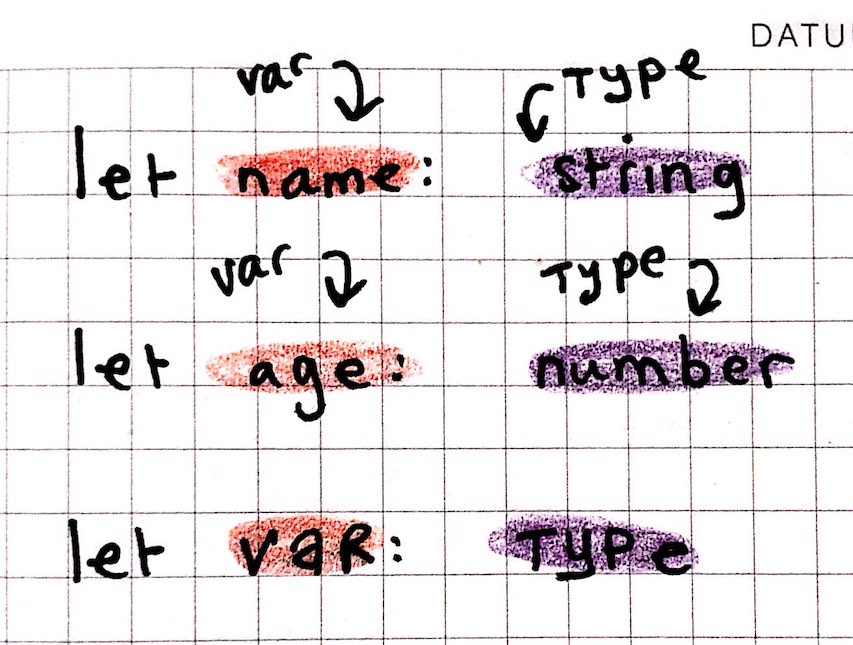 DATU
var Type
let name: string
var Type
let age: number
let vaR: Type